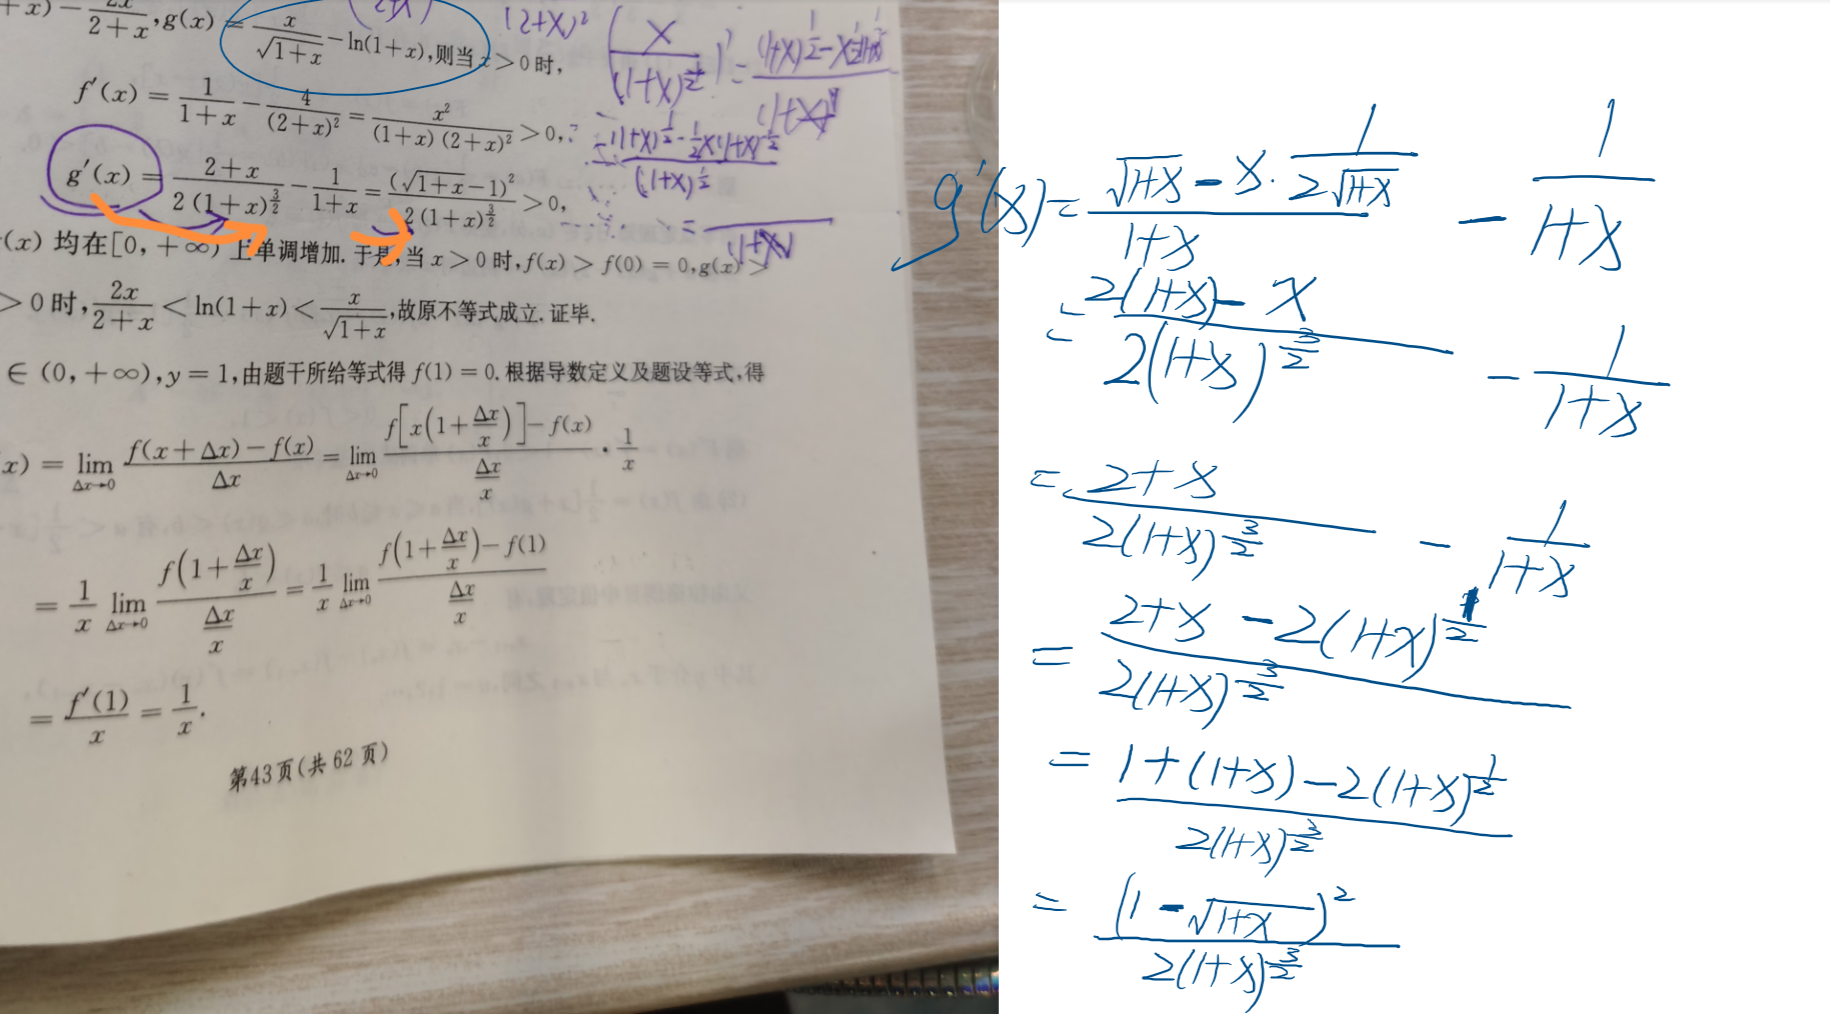 +x) − 2x/(2+x), g(x) = x/√(1+x) − ln(1+x), 则当 x > 0 时,
f′(x) = 1/(1+x) − 4/(2+x)² = x²/((1+x)(2+x)²) > 0,
g′(x) = (2+x)/(2(1+x)^(3/2)) − 1/(1+x) = (√(1+x)−1)²/(2(1+x)^(3/2)) > 0,
(x) 均在[0, +∞) 上单调增加. 于是, 当 x > 0 时, f(x) > f(0) = 0, g(x) >
> 0 时, 2x/(2+x) < ln(1+x) < x/√(1+x), 故原不等式成立. 证毕.
∈ (0, +∞), y = 1, 由题干所给等式得 f(1) = 0. 根据导数定义及题设等式, 得
x) = lim_(Δx→0) (f(x+Δx)−f(x))/Δx = lim_(Δx→0) (f[x(1+Δx/x)]−f(x))/(Δx/x) · 1/x
= 1/x lim_(Δx→0) f(1+Δx/x)/(Δx/x) = 1/x lim_(Δx→0) (f(1+Δx/x)−f(1))/(Δx/x)
= f′(1)/x = 1/x.
第43页(共 62 页)
(2+x)²
(x/(1+x)^(1/2))′ =
= ((1+x)^(1/2) − 1/2 x(1+x)^(-1/2))/
=
g′(x) = (√(1+x) − x · 1/(2√(1+x)))/(1+x) − 1/(1+x)
= (2(1+x) − x)/(2(1+x)^(3/2)) − 1/(1+x)
= (2+x)/(2(1+x)^(3/2)) − 1/(1+x)
= (2+x − 2(1+x)^(1/2))/(2(1+x)^(3/2))
= (1+(1+x)−2(1+x)^(1/2))/(2(1+x)^(3/2))
= (1−√(1+x))²/(2(1+x)^(3/2))